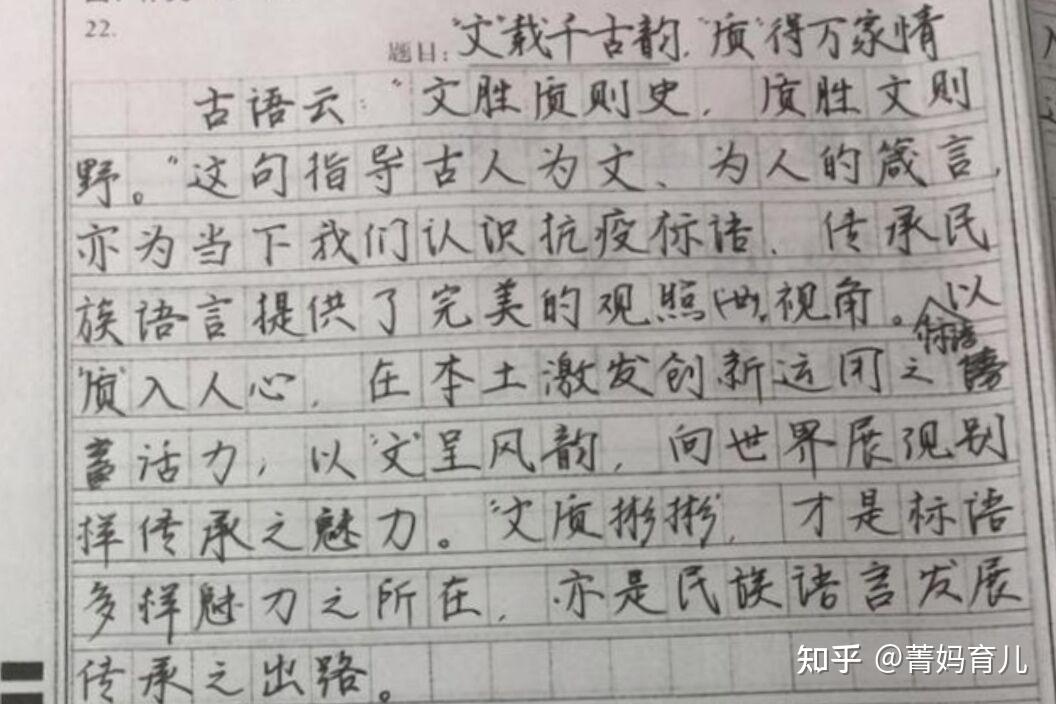 22.
题目：“文”载千古韵，“质”得万家情
古语云：“文胜质则史，质胜文则
野。”这句指导古人为文、为人的箴言，
亦为当下我们认识抗疫标语、传承民
族语言提供了完美的观照视角。以
标语
“质”入人心，在本土激发创新运用之
活力；以“文”呈风韵，向世界展现别
样传承之魅力。“文质彬彬”，才是标语
多样魅力之所在，亦是民族语言发展
传承之出路。
知乎 @菁妈育儿